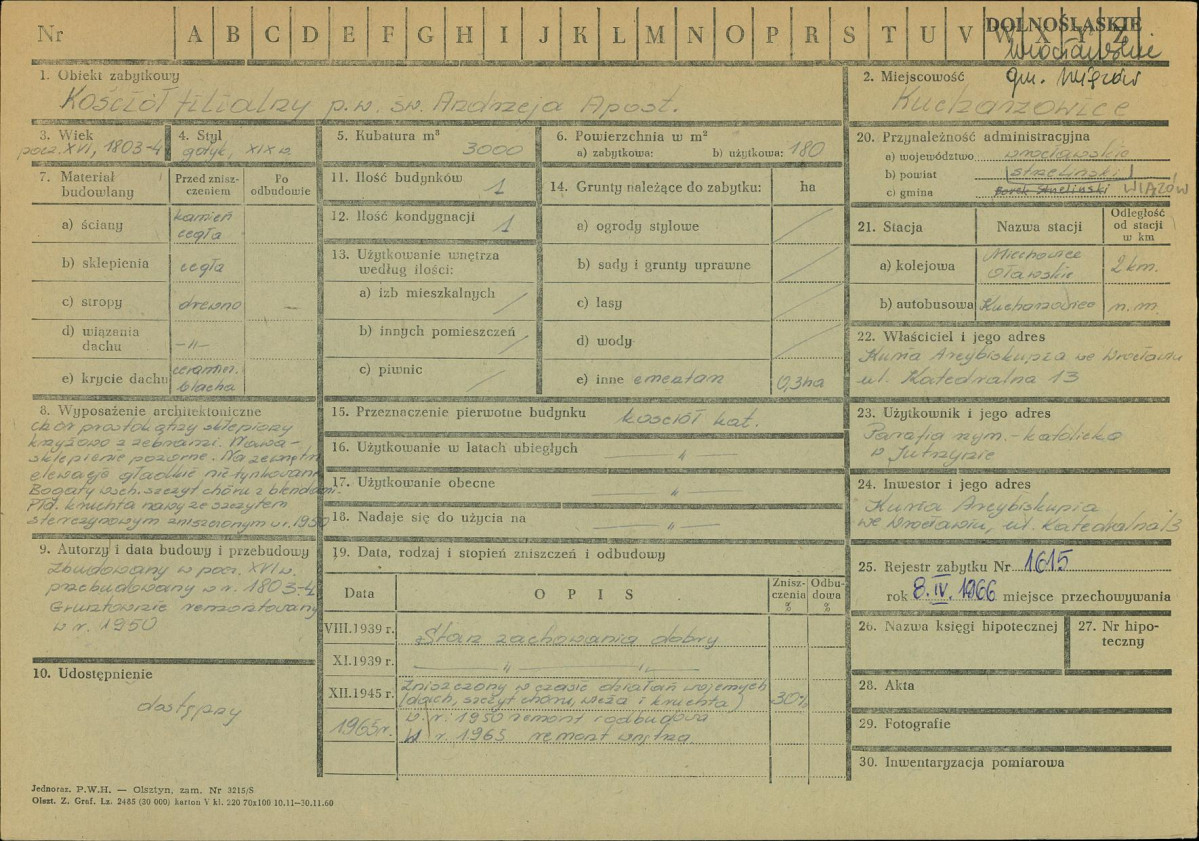 Nr A B C D E F G H I J K L M N O P R S T U V W X Y Z
DOLNOŚLĄSKIE
wrocławskie
gm. Wiązów
1. Obiekt zabytkowy
Kościół filialny p.w. św. Andrzeja Apost.
2. Miejscowość
Kucharzowice
3. Wiek
pocz. XVI, 1803-4
4. Styl
gotyk, XIX w.
5. Kubatura m³
3000
6. Powierzchnia w m²
a) zabytkowa: b) użytkowa: 180
20. Przynależność administracyjna
a) województwo wrocławskie
b) powiat strzeliński
c) gmina Borek Strzeliński WIĄZÓW
7. Materiał budowlany
Przed zniszczeniem
Po odbudowie
a) ściany kamień cegła
b) sklepienia cegła
c) stropy drewno —
d) wiązania dachu —„—
e) krycie dachu ceramicz. blacha
11. Ilość budynków 1
12. Ilość kondygnacji 1
13. Użytkowanie wnętrza według ilości:
a) izb mieszkalnych /
b) innych pomieszczeń /
c) piwnic /
14. Grunty należące do zabytku: ha
a) ogrody stylowe /
b) sady i grunty uprawne /
c) lasy /
d) wody /
e) inne cmentarz 0,3ha
21. Stacja Nazwa stacji Odległość od stacji w km
a) kolejowa Miechowice Oławskie 2 km.
b) autobusowa Kucharzowice n.m.
22. Właściciel i jego adres
Kuria Arcybiskupia we Wrocławiu
ul. Katedralna 13
8. Wyposażenie architektoniczne
chór prostokątny sklepiony
krzyżowo z żebrami. Nawa –
sklepienie pozorne. Na zewnątrz
elewacje gładkie nietynkowane
Bogaty wsch. szczyt chóru z blendami.
Płd. kruchta nawy ze szczytem
sterczynowym zniszczonym w r. 1950
15. Przeznaczenie pierwotne budynku kościół kat.
16. Użytkowanie w latach ubiegłych —„—
17. Użytkowanie obecne —„—
18. Nadaje się do użycia na —„—
23. Użytkownik i jego adres
Parafia rzym.-katolicka
w Jutrzynie
24. Inwestor i jego adres
Kuria Arcybiskupia
we Wrocławiu, ul. Katedralna 13
9. Autorzy i data budowy i przebudowy
Zbudowany w pocz. XVI w.
przebudowany w r. 1803-4
Gruntownie remontowany
w r. 1950
19. Data, rodzaj i stopień zniszczeń i odbudowy
Data OPIS Zniszczenia % Odbudowa %
VIII.1939 r. Stan zachowania dobry
XI.1939 r. —„— —„—
XII.1945 r. Zniszczony w czasie działań wojennych
(dach, szczyt chóru, wieża i kruchta) 30%
w r. 1950 remont i odbudowa
1965 r. W r. 1965 remont wnętrza
25. Rejestr zabytku Nr 1615
rok 8.IV.1966 miejsce przechowywania
26. Nazwa księgi hipotecznej
27. Nr hipoteczny
10. Udostępnienie
dostępny
28. Akta
29. Fotografie
30. Inwentaryzacja pomiarowa
Jednoraz. P.W.H. — Olsztyn, zam. Nr 3215/S
Olszt. Z. Graf. Lz. 2485 (30 000) karton V kl. 220 70x100 10.11—30.11.60